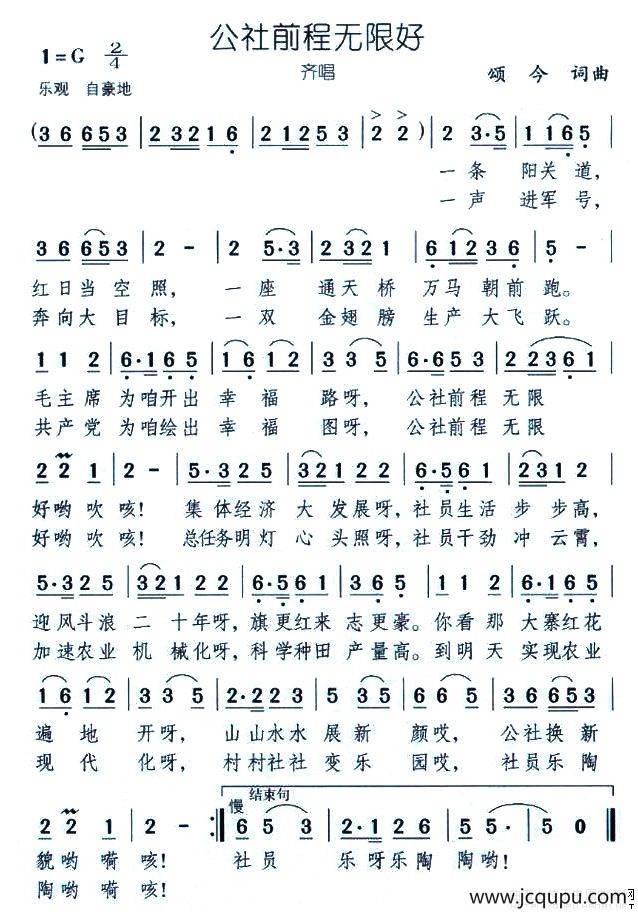 公社前程无限好
1=G 2/4
齐唱
颂今 词曲
乐观 自豪地
(3 6 6 5 3 | 2 3 2 1 6 | 2 1 2 5 3 | 2 2 ) | 2 3·5 | 1 1 6 5 |
一条 阳关道,
一声 进军号,
3 6 6 5 3 | 2 - | 2 5·3 | 2 3 2 1 | 6 1 2 3 6 | 5 - |
红日当空照, 一座 通天桥 万马朝前跑。
奔向大目标, 一双 金翅膀 生产大飞跃。
1 1 2 | 6·1 6 5 | 1 6 1 2 | 3 3 5 | 6·5 6 3 | 2 2 3 6 1 |
毛主席 为咱开出 幸福 路呀, 公社前程 无限
共产党 为咱绘出 幸福 图呀, 公社前程 无限
2 2 1 | 2 - | 5·3 2 5 | 3 2 1 2 2 | 6·5 6 1 | 2 3 1 2 |
好哟吹咳! 集体经济 大发展呀, 社员生活 步步高,
好哟吹咳! 总任务明灯 心头照呀, 社员干劲 冲云霄,
5·3 2 5 | 3 2 1 2 2 | 6·5 6 1 | 3 6 5 | 1 1 2 | 3 2 5 3 2 |
迎风斗浪 二十年呀, 旗更红来 志更豪。你看那 大寨红花
加速农业 机械化呀, 科学种田 产量高。到明天 实现农业
1 6 1 2 | 3 3 5 | 2·2 2 3 | 5 6 1 | 6 5 3 | 3 6 6 5 3 |
遍地 开呀, 山山水水 展新 颜哎, 公社换新
现代 化呀, 村村社社 变乐 园哎, 社员乐陶
结束句
慢
2 2 1 | 2 - :| 6 5 3 | 2·1 2 6 | 5 5 | 5 0 ‖
貌哟嗬咳! 社员 乐呀乐陶陶哟!
陶哟嗬咳!
www.jcqupu.com